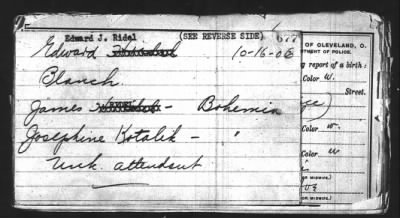 Edward J. Ridel
(SEE REVERSE SIDE) 677
Edward 10-16-08
Blanch.
James - Bohemia
Josephine Kotalik - "
Unk. attendant
OF CLEVELAND, O.
RTMENT OF POLICE.
g report of a birth:
Color W.
Street.
Color w.
Color w
OR MIDWIFE.)
OR MIDWIFE.)